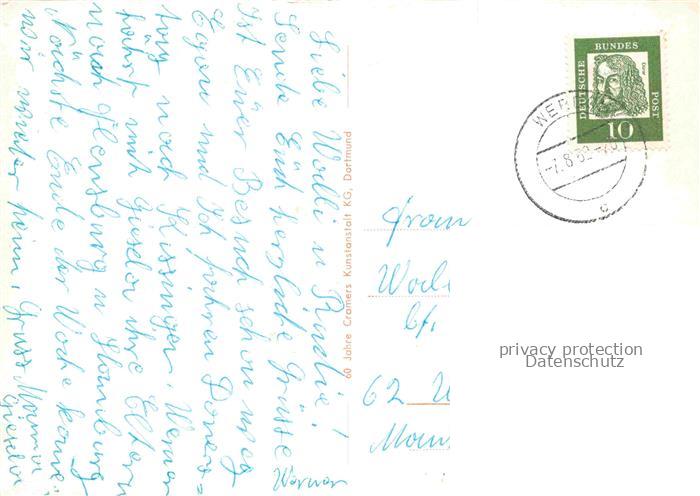 Liebe Wolli u Rudlie!
Sende Euch herzliche Grüsse
Ist Euer Besuch schon weg
Egon und Ich fahren Doners=
tag nach Kissingen. Werner
fährt mit Giesela ihre Eltern
nach Flensburg u Hamburg
Nächste Ende der Woche komme
wir wieder heim. Gruss Mama
Giesela
Werner
60 Jahre Cramers Kunstanstalt KG, Dortmund
DEUTSCHE BUNDES POST
Dürer
10
WER
-7.8.62-
c
62
privacy protection
Datenschutz